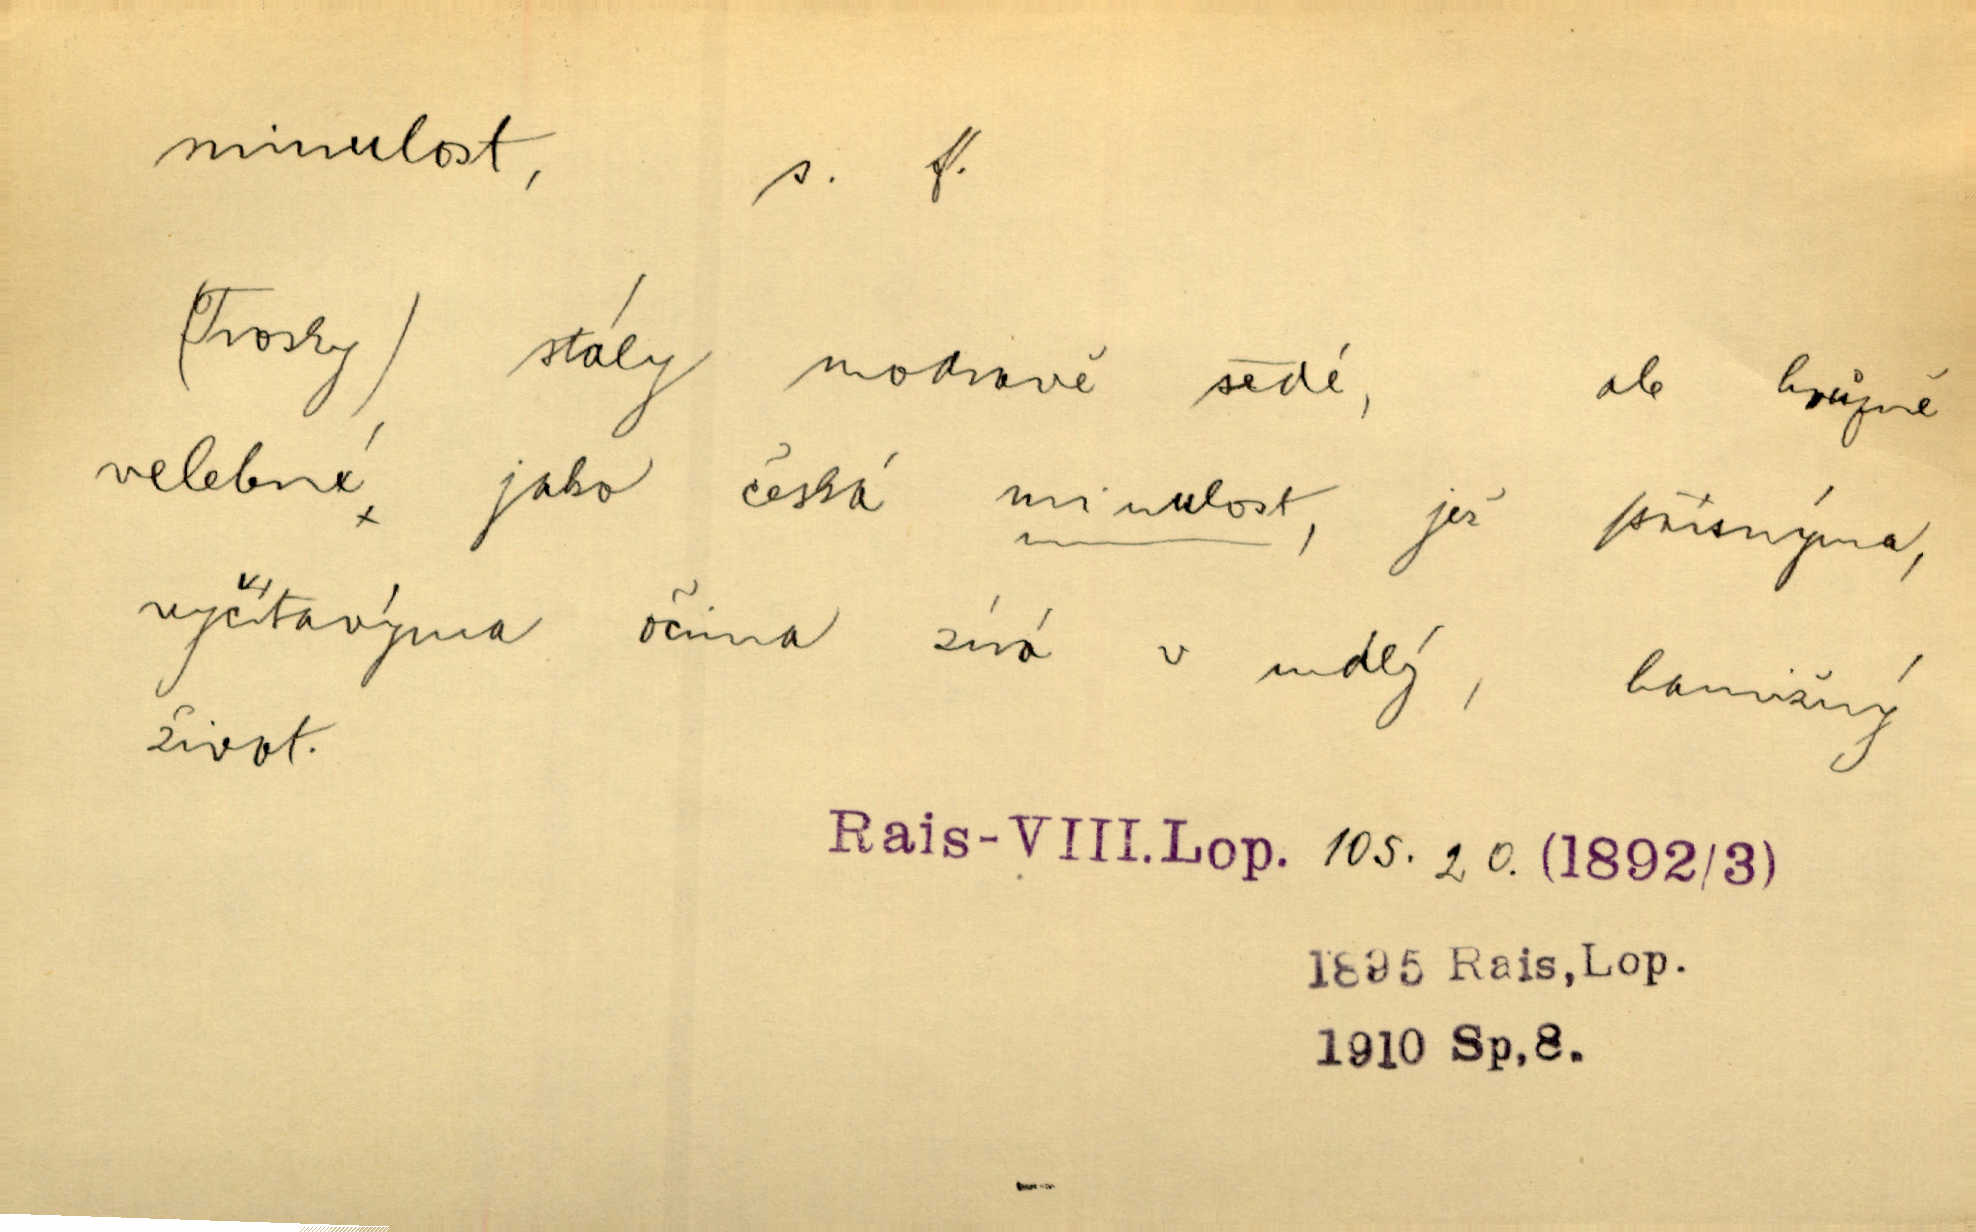 minulost, s. f.
(Trosky) stály modravě šedé, ale hrůzně
velebné, jako česká minulost, jež přísnýma,
vyčítavýma očima zírá v mdlý, hamižný
život.
Rais-VIII.Lop. 105. 20. (1892/3)
1895 Rais,Lop.
1910 Sp,8.